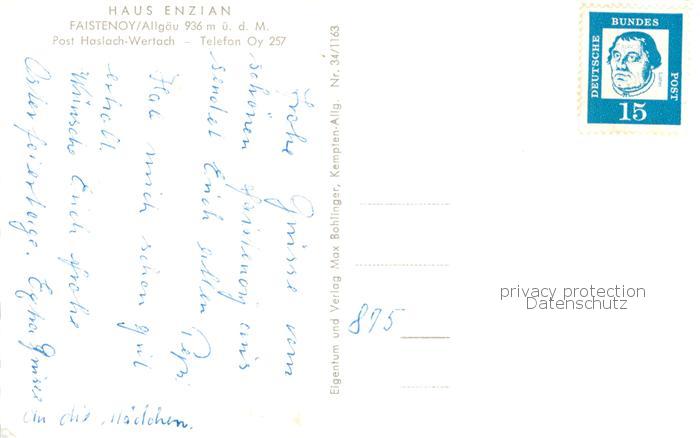 HAUS ENZIAN
FAISTENOY/Allgäu 936 m ü. d. M.
Post Haslach-Wertach – Telefon Oy 257
Frohe Grüsse vom
schönen Faistenoy uns
sendet Euch allen Pepi.
Hab mich schon gut
erholt.
Wünsche Euch frohe
Osterfeiertage. Extra Grüsse
an die Mädchen.
Eigentum und Verlag Max Bohlinger, Kempten-Allg. Nr. 34/1163
DEUTSCHE
BUNDES
POST
Luther
15
875
privacy protection
Datenschutz